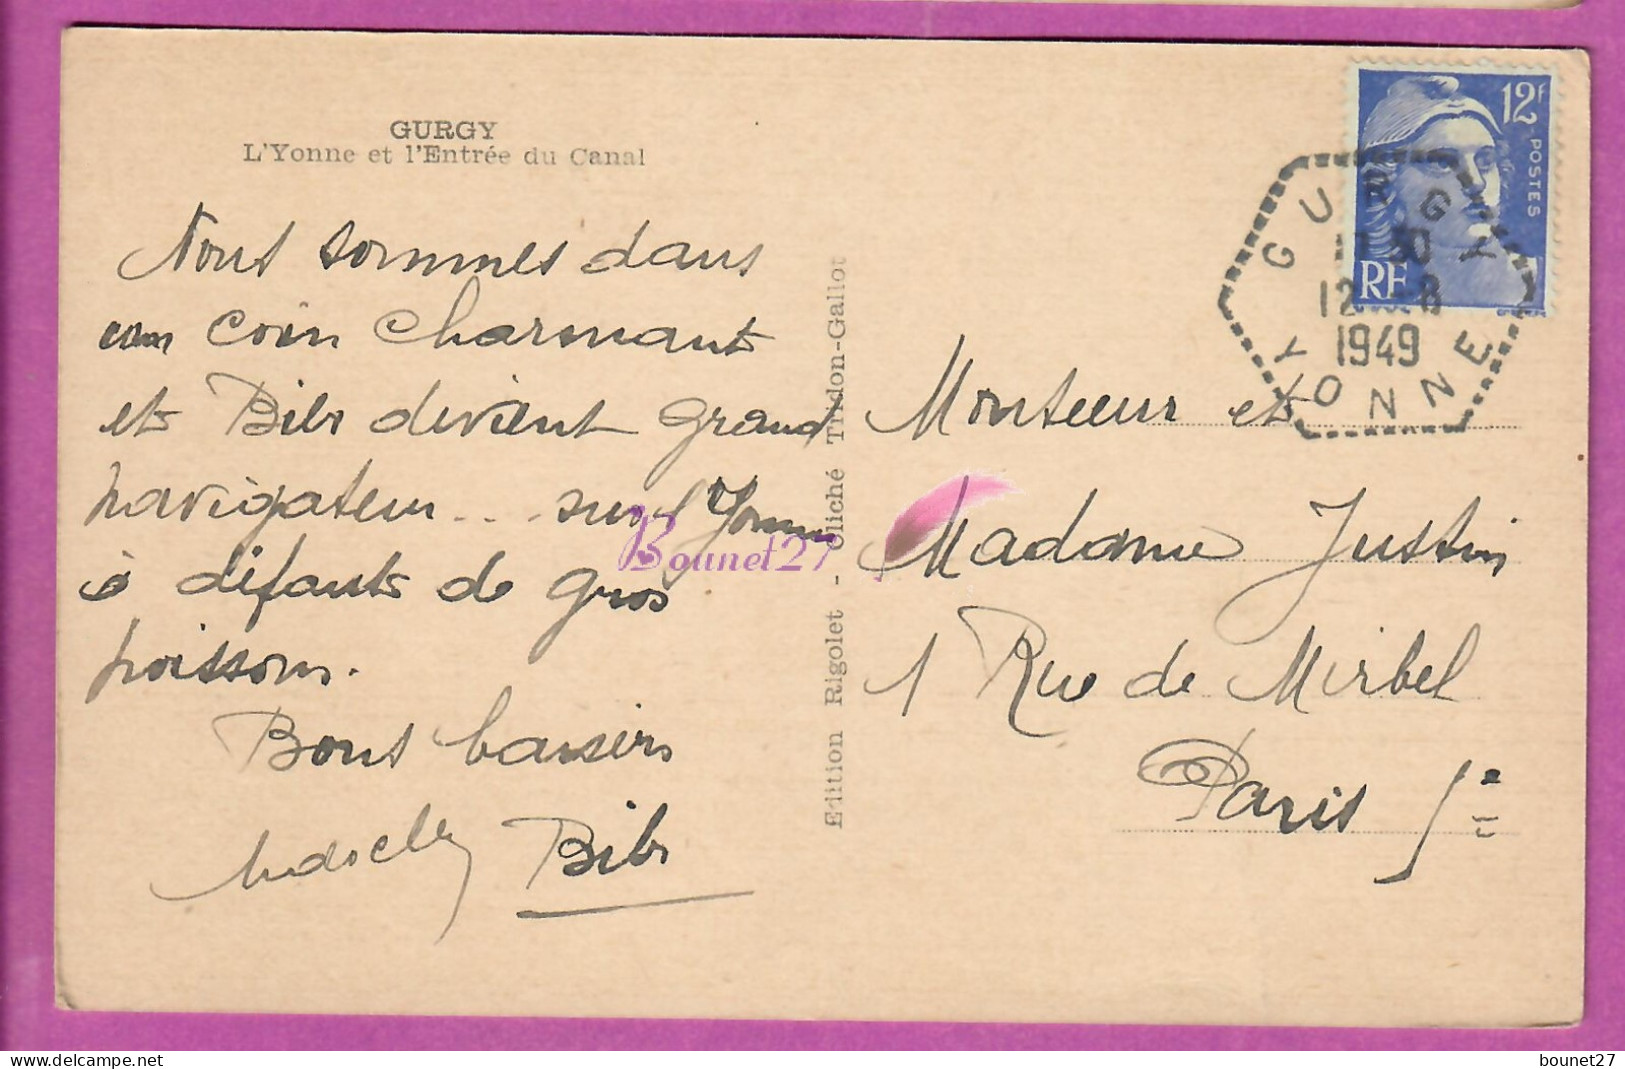 GURGY
L'Yonne et l'Entrée du Canal
Nous sommes dans
un coin charmant
et Bibi devient grand
navigateur... sur l'Yonne
à défauts de gros
poissons.
Bons baisers
Bibi
Edition Rigolet - Cliché Tridon-Gallot
12F
POSTES
RF
GURGY
12 - 8
1949
YONNE
Monsieur et
Madame Justin
1 Rue de Mirbel
Paris 5e
Bounet27
delcampe.net
bounet27